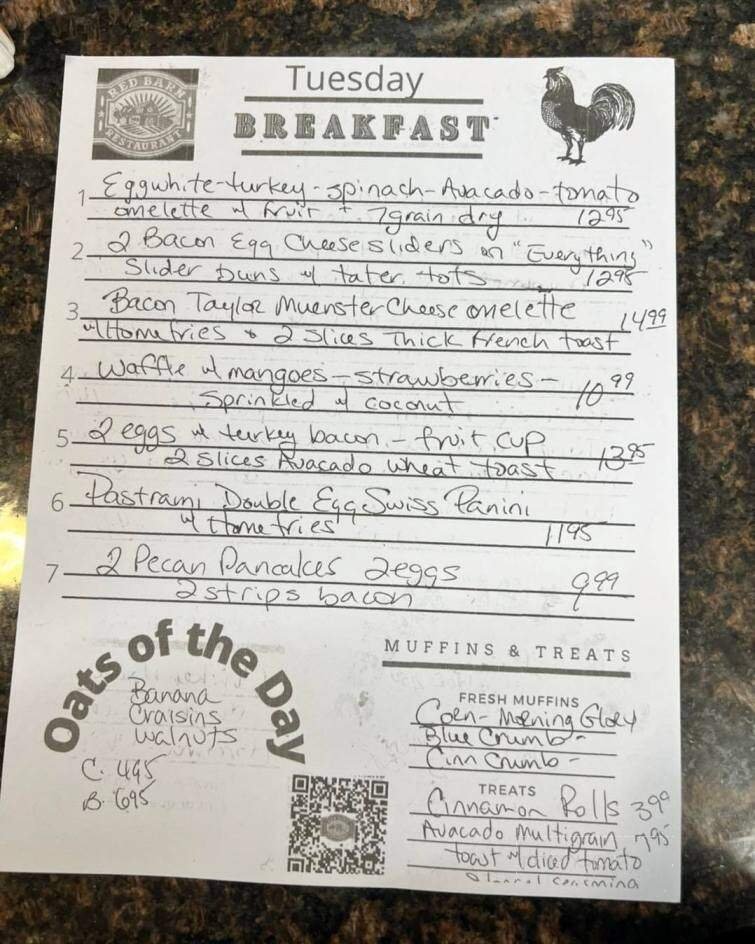 RED BARN
RESTAURANT
Tuesday
BREAKFAST
1 Eggwhite-turkey-spinach-Avacado-tomato
omelette w/ fruit + 7grain dry 12.95
2 2 Bacon Egg Cheese sliders on "Everything"
Slider buns w/ tater tots 12.95
3 Bacon Taylor Muenster Cheese omelette 14.99
w/Homefries & 2 Slices Thick French toast
4 Waffle w/ mangoes - strawberries -
Sprinkled w/ coconut 10.99
5 2 eggs w/ turkey bacon - fruit cup
2 slices Avacado wheat toast 13.95
6 Pastrami Double Egg Swiss Panini
w/ Homefries 11.95
7 2 Pecan Pancakes 2eggs
2 strips bacon 9.99
Oats of the Day
Banana
Craisins
walnuts
C. 4.95
B. 6.95
MUFFINS & TREATS
FRESH MUFFINS
Corn - Morning Glory
Blue Crumb -
Cinn Crumb -
TREATS
Cinnamon Rolls 3.99
Avacado Multigrain 7.95
toast w/ diced tomato